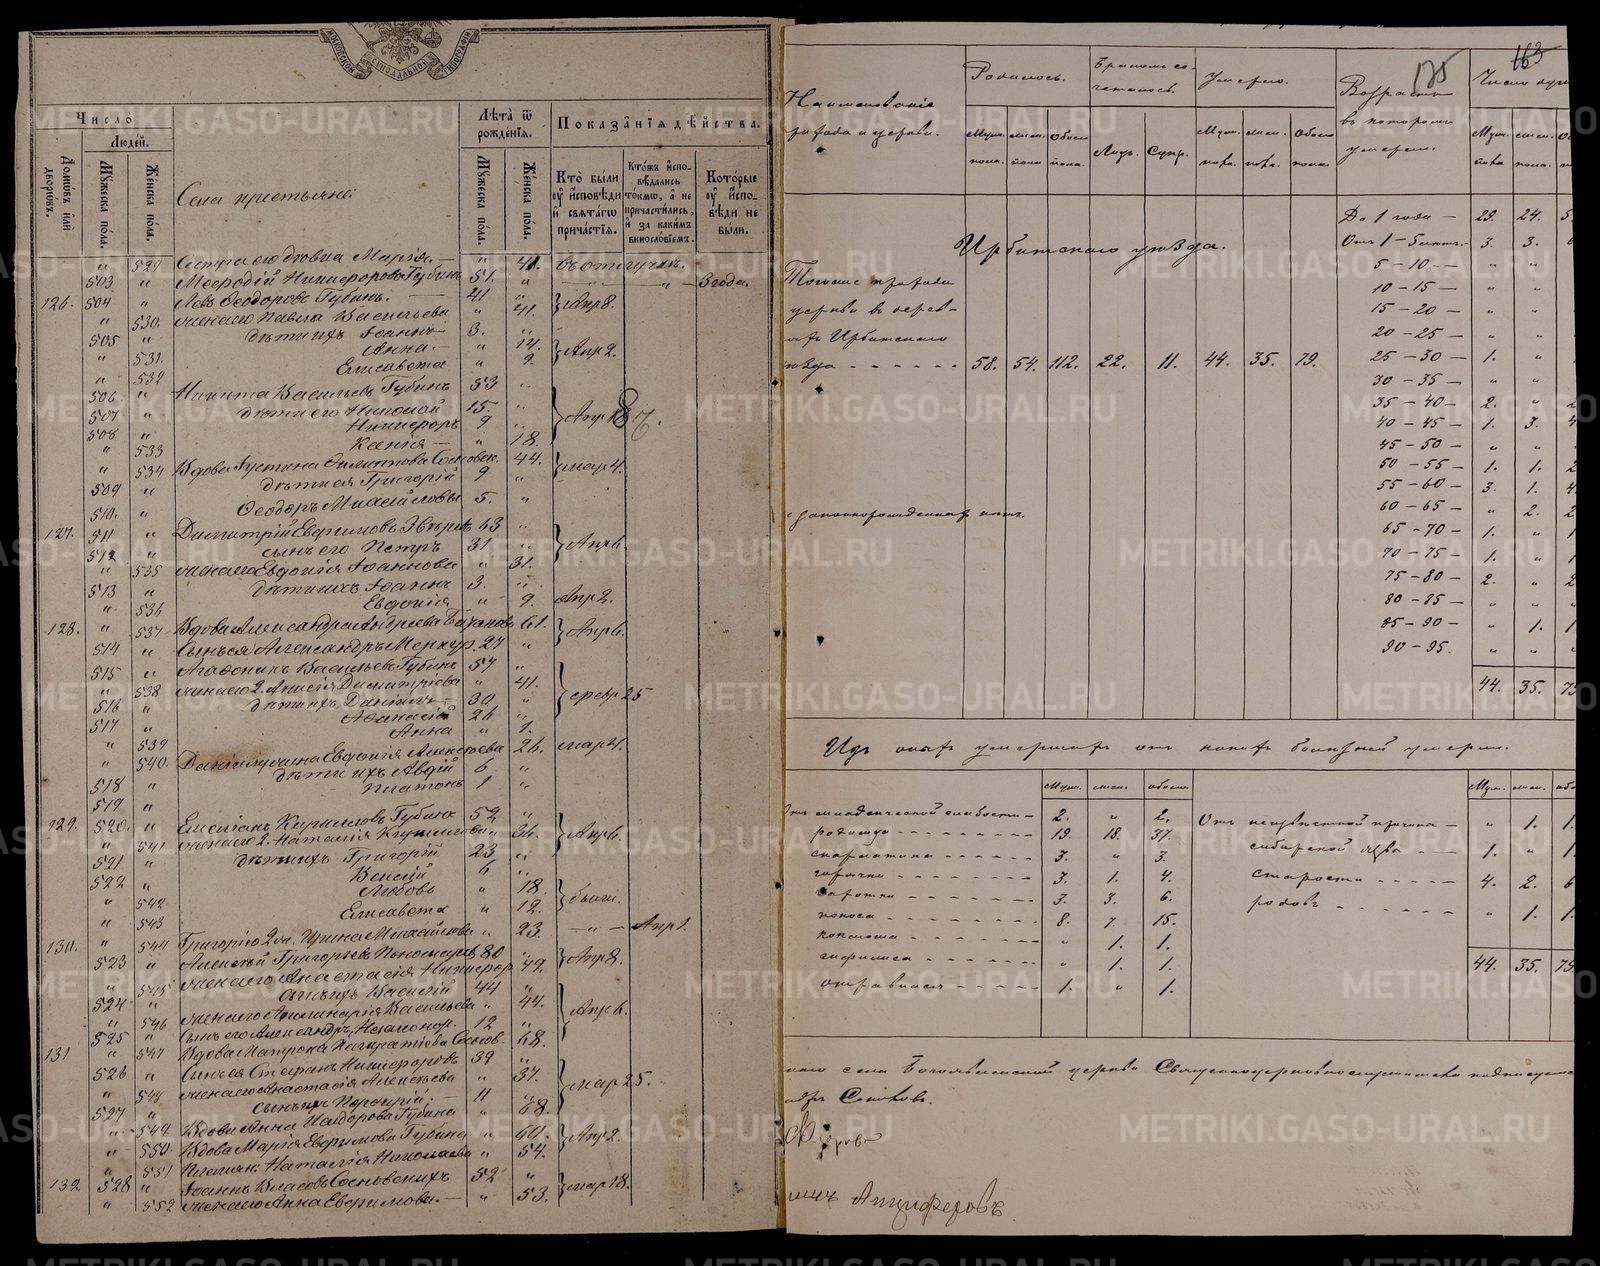 МОСКОВСКОЙ СУНОДАЛЬНОЙ ТИПОГРАФІИ
Число
Людей.
Домовъ или дворовъ.
Мужеска пола.
Женска пола.
Села крестьяне:
Лѣта ѿ рожденія.
Мужеска пола.
Женска пола.
Показанія дѣйства.
Кто были оу исповѣди и святагω причастія.
Ктожъ исповѣдались токмω, а не причастились, и за какимъ винословіемъ.
Которые оу исповѣди не были.
" 529 Сестра его дѣвка Марія. — " 41. въ отлучкѣ.
503 " Меѳодій Никифоровъ Губинъ 51. " " — " — 3 года.
126. 504 " Левъ Ѳеодоровъ Губинъ. — 41 " } Апр 8.
" 530. жена его Павла Васильева " 41.
505 " дѣти ихъ Іоаннъ 3. "
" 531. Анна. — " 14. } Апр 2.
" 532 Елисавета " 9.
506. " Никита Васильевъ Губинъ 53 "
507 " дѣти его Николай 15. " } Апр 18
508 " Никифоръ 9 "
" 533 Ксенія — " 18.
" 534 Вдова Іустина Филиппова Сосновск. 44. } мар 4.
509 " дѣти ея Григорій 9 "
510. " Ѳеодоръ Михайловы 5. "
127. 511 " Димитрій Евфимовъ Звѣревъ 63 "
512 " сынъ его Петръ 31 " } Апр 6.
" 535 жена его Евдокія Іоаннова " 31.
513 " дѣти ихъ Іоаннъ 3. "
" 536 Евдокія — " 9. Апр 2.
128. " 537 Вдова Александра Андреева 61. } Апр 6.
514 " Сынъ ея Александръ Меркур. 27 "
515 " Агафоникъ Васильевъ Губинъ 57 "
" 538 жена его 2. Анисія Димитріева " 41. } февр 25
516 " дѣти ихъ Даніилъ 30 "
517 " Аѳанасій 26 "
" 539 Анна " 1.
" 540. Даніила жена Евдокія Алексѣева 26. мар 4.
518 " дѣти ихъ Авдій 6 "
519 " Платонъ 1 "
129. 520. " Емеліанъ Кирилловъ Губинъ 52 "
" 541 жена его 2. Наталія " 36. } Апр 6.
521 " дѣти ихъ Григорій 23 "
522 " 6 "
" 542 Любовь " 18. } были.
" 543 Елисавета " 12.
" 544 Григорія жена Ирина Михайлова " 23. — " — Апр 1.
130. 523 " Алексѣй Григорьевъ Пономаревъ 80 " } Апр 8.
" 545 жена его Анастасія Никифор. 49.
524 " сынъ ихъ Василій 44 "
" 546 жена его Аполинарія Васильева " 44. } Апр 6.
525 " Сынъ его Александръ, Незаконор. 12 "
131 " 547 Вдова Матрона Панкратіева Соснов. 68.
526 " Сынъ ея Стефанъ Никифоровъ 39 "
" 548 жена его Анастасія Алексѣева " 37. } мар 25.
527 " сынъ ихъ Порфирій. — 11 "
" 549 Вдова Анна Исидорова Губина " 68.
" 550. Вдова Марія Евфимова Губина " 60. } Апр 2.
" 551 Племян: Наталія Николаева " 54.
132 528 " Іоаннъ Власовъ Сосновскихъ 52 " } мар 18.
" 552 жена его Анна Евфимова. — " 53.
163
175
Наименованіе города и церкви.
Родилось.
Бракомъ сочеталось.
Умерло.
Возрастъ въ которомъ умерли.
Муж. пола. жен. пола обоего пола.
Лицъ. Супр.
Муж. пола. жен. пола. обоего пола.
Муж. пола жен. пола.
Ирбитскаго уѣзда.
церкви
Ирбитскаго
уѣзда - - - - - - 58. 54. 112. 22. 11. 44. 35. 79.
До 1 года — 29. 24. 5
Отъ 1 — 5 лѣтъ. — 3. 3.
5 — 10 — " "
10 — 15 — " "
15 — 20 — " "
20 — 25 — " "
25 — 30 — 1. "
30 — 35 — " "
35 — 40 — 2. " 2
40 — 45 — 1. 3. 4
45 — 50 — " "
50 — 55 — 1. 1. 2
55 — 60 — 3. 1. 4
60 — 65 — " 2. 2
65 — 70 — 1. " 1
70 — 75 — 1. " 1
75 — 80 — 2. " 2
80 — 85 — " "
85 — 90 — " 1. 1
90 — 95. " "
44. 35. 79
незаконнорожденныхъ нѣтъ.
Изъ нихъ умершихъ отъ какихъ болѣзней умерли.
Муж. жен. обоего.
Муж. жен. обо
Отъ младенческой слабости — 2. " 2.
родимца - - - - 19. 18. 37.
скарлатина - - - - 3. " 3.
горячки - - - - 3. 1. 4.
чахотки - - - - 3. 3. 6.
поноса - - - - 8. 7. 15.
коклюша - - - - " 1. 1.
сифилиса - - - - " 1. 1.
отравился - - - - 1. " 1.
Отъ неизвѣстной причины — " 1. 1.
сибирской язвы — 1. " 1.
старости - - - - 4. 2. 6
родовъ - - - - " 1. 1.
44. 35. 79.
села Богоявленской церкви Священноцерковнослужители подписуемся
Анциферовъ
METRIKI.GASO-URAL.RU